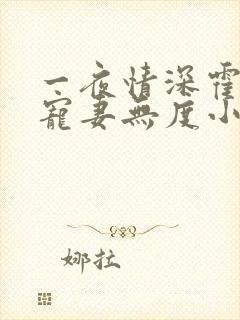 一夜情深霍
寵妻無度小
娜拉